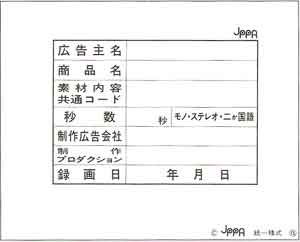 JPPA
広告主名
商品名
素材内容
共通コード
秒数 秒 モノ・ステレオ・二ヵ国語
制作広告会社
制作
プロダクション
録画日 年 月 日
© JPPA 統一様式